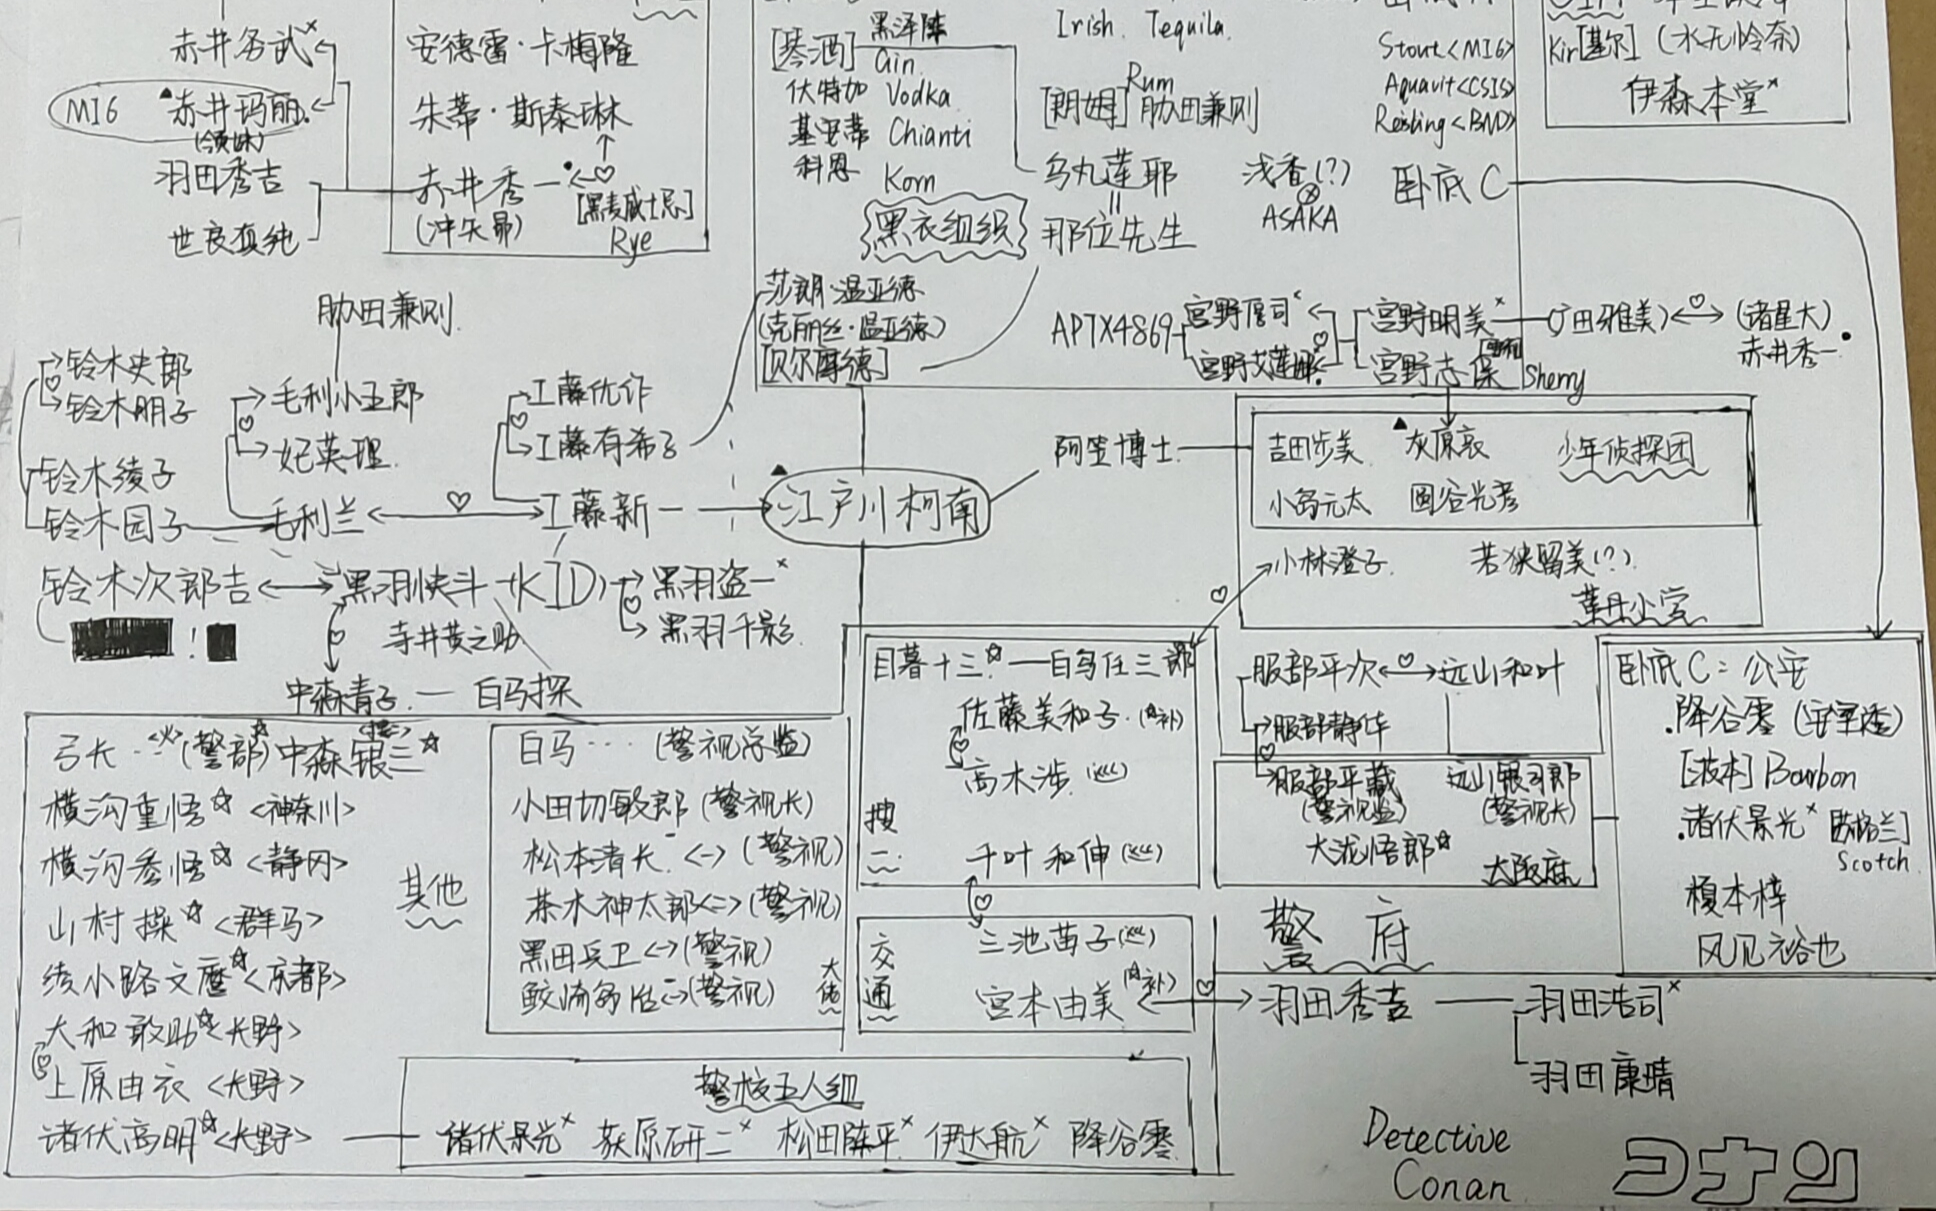 赤井务武×
MI6 ▲赤井玛丽
(领妹)
羽田秀吉
世良真纯
安德雷·卡梅隆
朱蒂·斯泰琳
赤井秀一
(冲矢昴)
[黑麦威士忌]
Rye
[琴酒] 黑泽阵
Gin
伏特加 Vodka
基安蒂 Chianti
科恩 Korn
黑衣组织
Irish. Tequila.
Rum
[朗姆] 肋田兼则
乌丸莲耶
=
那位先生
浅香(?)
ASAKA
Stout<MI6>
Aquavit<CSIS>
Reisling<BND>
卧底C
Kir[基尔] (水无怜奈)
伊森本堂×
莎朗·温亚德
(克丽丝·温亚德)
[贝尔摩德]
APTX4869
宫野厚司×
宫野艾莲娜
宫野明美×
宫野志保
Sherry
(广田雅美)
(诸星大)
赤井秀一
肋田兼则
铃木史郎
铃木朋子
铃木绫子
铃木园子
毛利小五郎
妃英理
毛利兰
工藤优作
工藤有希子
工藤新一
▲江户川柯南
阿笠博士
吉田步美 ▲灰原哀 少年侦探团
小岛元太 圆谷光彦
小林澄子 若狭留美(?)
铃木次郎吉
!
黑羽快斗 (KID)
黑羽盗一×
黑羽千影
寺井黄之助
中森青子 — 白马探
目暮十三☆ — 白鸟任三郎
佐藤美和子
高木涉
千叶和伸
搜
二
交
通
三池苗子
宫本由美
服部平次 远山和叶
服部静华
服部平藏
(警视监)
远山银司郎
(警视长)
大泷悟郎☆
大阪府
警府
卧底C:公安
降谷零 (安室透)
[波本] Bourbon
诸伏景光×
Scotch
榎本梓
风见裕也
羽田秀吉 — 羽田浩司×
羽田康晴
弓长…<火>(警部☆) 中森银三☆
横沟重悟☆<神奈川>
横沟参悟☆<静冈>
山村操☆<群马>
绫小路文麿☆<京都>
大和敢助☆<长野>
上原由衣<长野>
诸伏高明☆<长野>
其他
白马… (警视总监)
小田切敏郎 (警视长)
松本清长 <一> (警视)
茶木神太郎<二>(警视)
黑田兵卫<一>(警视)
(警视)
大佬
警校五人组
诸伏景光× 萩原研二× 松田阵平× 伊达航× 降谷零
Detective
Conan
コナン